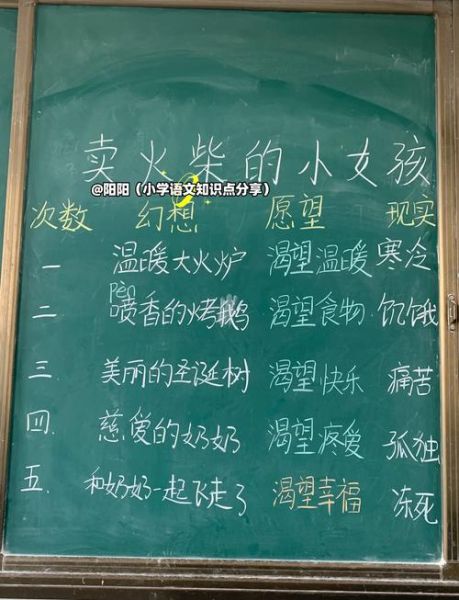 卖火柴的小女孩
@阳阳（小学语文知识点分享）
次数 幻想 愿望 现实
一 温暖大火炉 渴望温暖 寒冷
pèn
二 喷香的烤鹅 渴望食物 饥饿
三. 美丽的圣诞树 渴望快乐 痛苦
四. 慈爱的奶奶 渴望疼爱 孤独
五. 和奶奶一起飞走了 渴望幸福 冻死